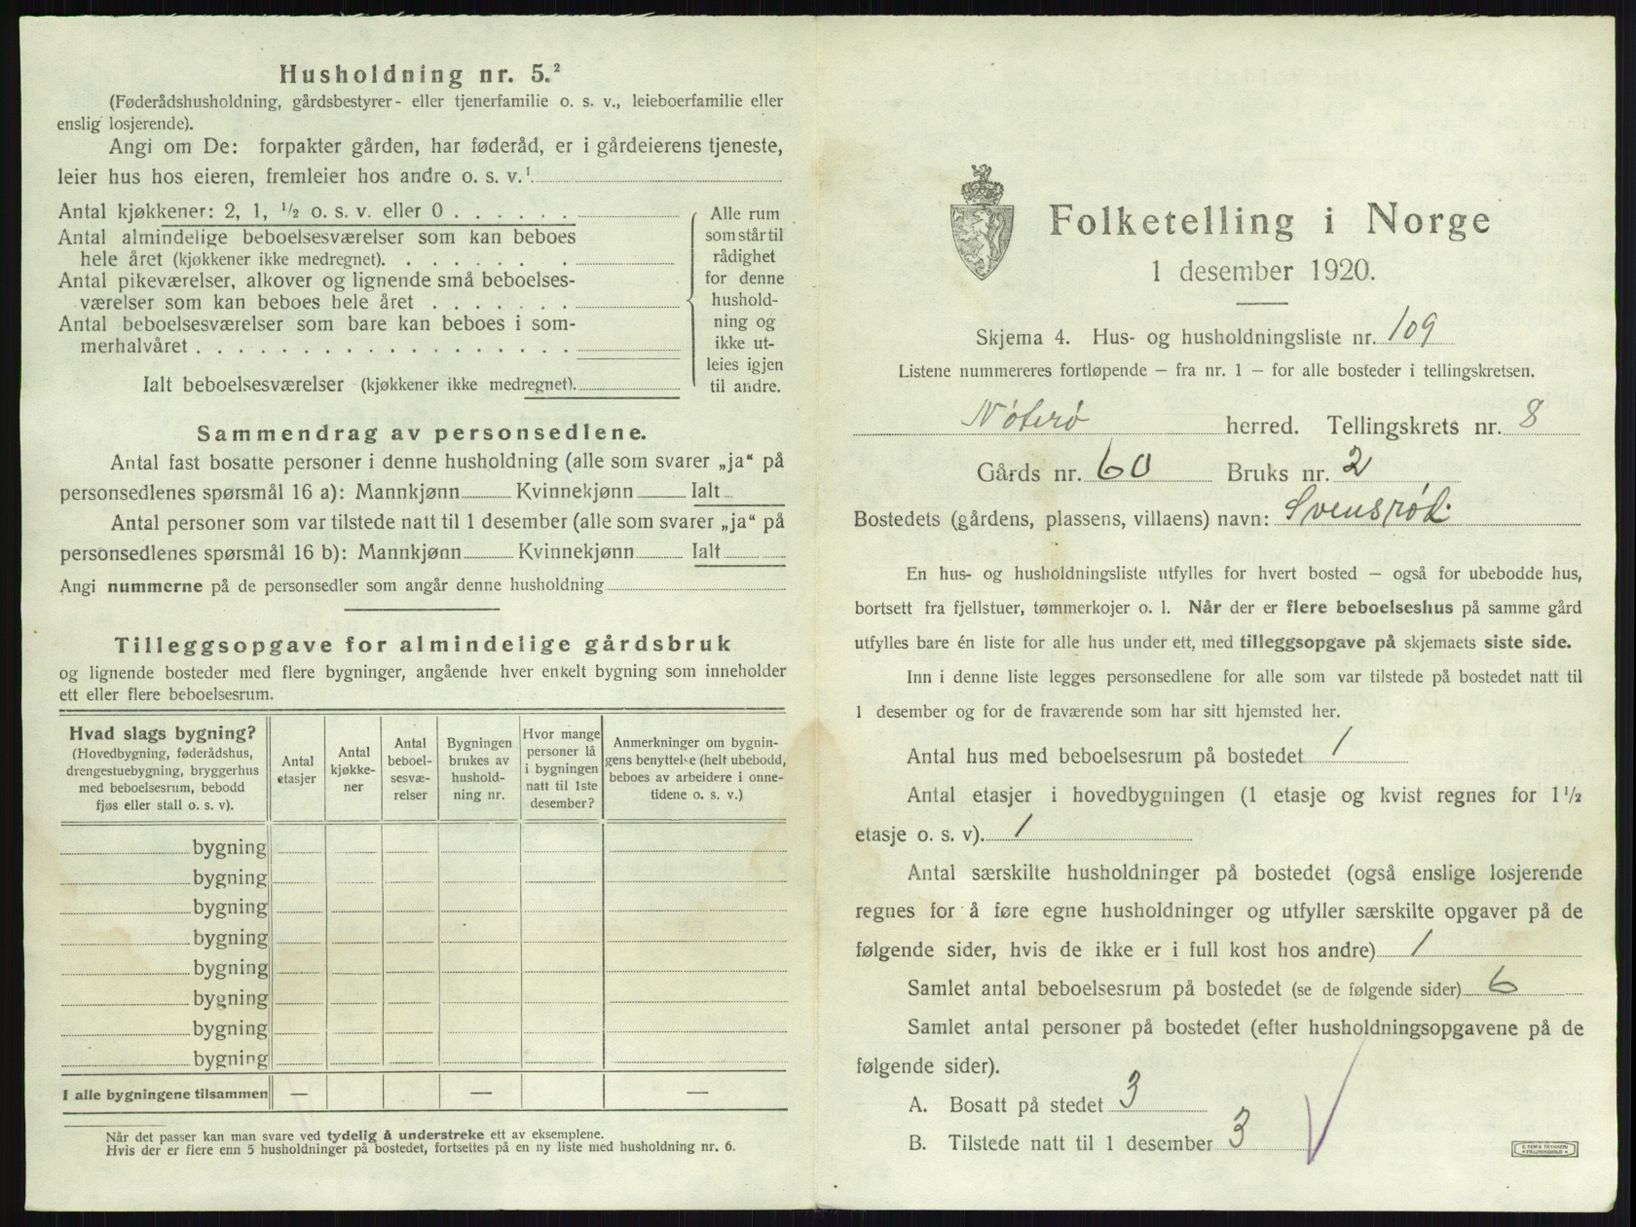 Husholdning nr. 5.²
(Føderådshusholdning, gårdsbestyrer- eller tjenerfamilie o. s. v., leieboerfamilie eller
enslig losjerende).
Angi om De: forpakter gården, har føderåd, er i gårdeierens tjeneste,
leier hus hos eieren, fremleier hos andre o. s. v.¹
Antal kjøkkener: 2, 1, ½ o. s. v. eller 0 . . . . . .
Antal almindelige beboelsesværelser som kan beboes
hele året (kjøkkener ikke medregnet). . . . . . . .
Antal pikeværelser, alkover og lignende små beboelses-
værelser som kan beboes hele året . . . . . . .
Antal beboelsesværelser som bare kan beboes i som-
merhalvåret . . . . . . . . . . . . . . . . . . .
Ialt beboelsesværelser (kjøkkener ikke medregnet).
Alle rum
som står til
rådighet
for denne
hushold-
ning og
ikke ut-
leies igjen
til andre.
Sammendrag av personsedlene.
Antal fast bosatte personer i denne husholdning (alle som svarer „ja“ på
personsedlenes spørsmål 16 a): Mannkjønn Kvinnekjønn Ialt
Antal personer som var tilstede natt til 1 desember (alle som svarer „ja“ på
personsedlenes spørsmål 16 b): Mannkjønn Kvinnekjønn Ialt
Angi nummerne på de personsedler som angår denne husholdning
Tilleggsopgave for almindelige gårdsbruk
og lignende bosteder med flere bygninger, angående hver enkelt bygning som inneholder
ett eller flere beboelsesrum.
Hvad slags bygning?
(Hovedbygning, føderådshus,
drengestuebygning, bryggerhus
med beboelsesrum, bebodd
fjøs eller stall o. s. v).
Antal
etasjer
Antal
kjøkke-
ner
Antal
beboel-
sesvæ-
relser
Bygningen
brukes av
hushold-
ning nr.
Hvor mange
personer lå
i bygningen
natt til 1ste
desember?
Anmerkninger om bygnin-
gens benyttelse (helt ubebodd,
beboes av arbeidere i onne-
tidene o. s. v.)
bygning
bygning
bygning
bygning
bygning
bygning
bygning
bygning
I alle bygningene tilsammen — — —
Når det passer kan man svare ved tydelig å understreke ett av eksemplene.
Hvis der er flere enn 5 husholdninger på bostedet, fortsettes på en ny liste med husholdning nr. 6.
Folketelling i Norge
1 desember 1920.
Skjema 4. Hus- og husholdningsliste nr. 109
Listene nummereres fortløpende — fra nr. 1 — for alle bosteder i tellingskretsen.
Nøterø herred. Tellingskrets nr. 8
Gårds nr. 60 Bruks nr. 2
Bostedets (gårdens, plassens, villaens) navn: Svensrød.
En hus- og husholdningsliste utfylles for hvert bosted — også for ubebodde hus,
bortsett fra fjellstuer, tømmerkojer o. l. Når der er flere beboelseshus på samme gård
utfylles bare én liste for alle hus under ett, med tilleggsopgave på skjemaets siste side.
Inn i denne liste legges personsedlene for alle som var tilstede på bostedet natt til
1 desember og for de fraværende som har sitt hjemsted her.
Antal hus med beboelsesrum på bostedet 1
Antal etasjer i hovedbygningen (1 etasje og kvist regnes for 1½
etasje o. s. v). 1
Antal særskilte husholdninger på bostedet (også enslige losjerende
regnes for å føre egne husholdninger og utfyller særskilte opgaver på de
følgende sider, hvis de ikke er i full kost hos andre) 1
Samlet antal beboelsesrum på bostedet (se de følgende sider) 6
Samlet antal personer på bostedet (efter husholdningsopgavene på de
følgende sider).
A. Bosatt på stedet 3
B. Tilstede natt til 1 desember 3